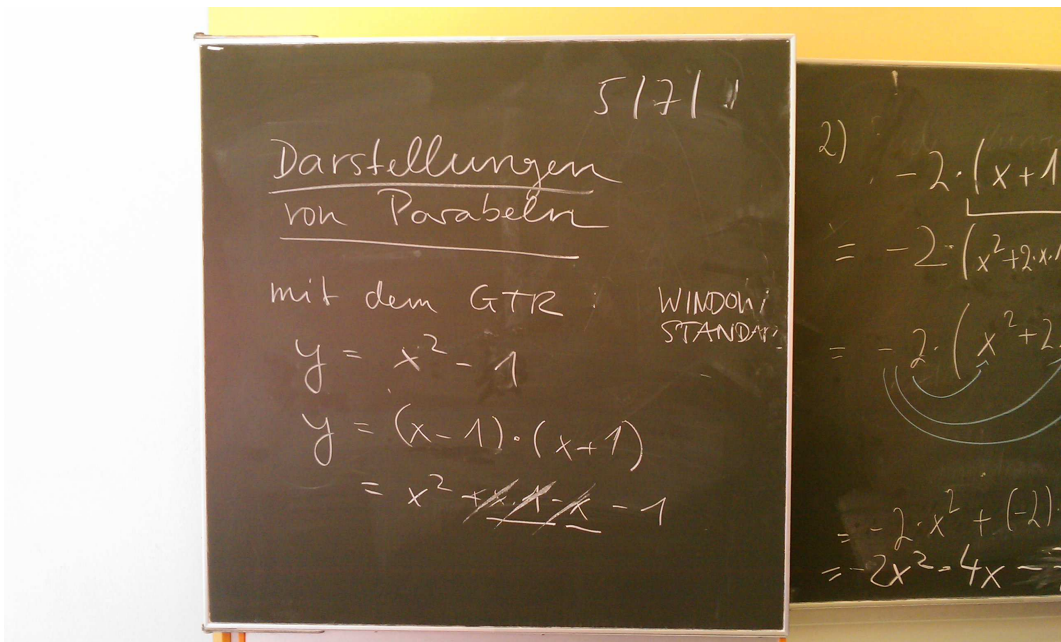 5/7/11
Darstellungen
von Parabeln
mit dem GTR :
WINDOW:
STANDAR
y = x² - 1
y = (x-1)·(x+1)
= x² + x·1 - x - 1
2)
-2·(x+1
= -2·(x²+2·x·1
= -2·(x²+2
= -2·x² + (-2)·
= -2x² - 4x -